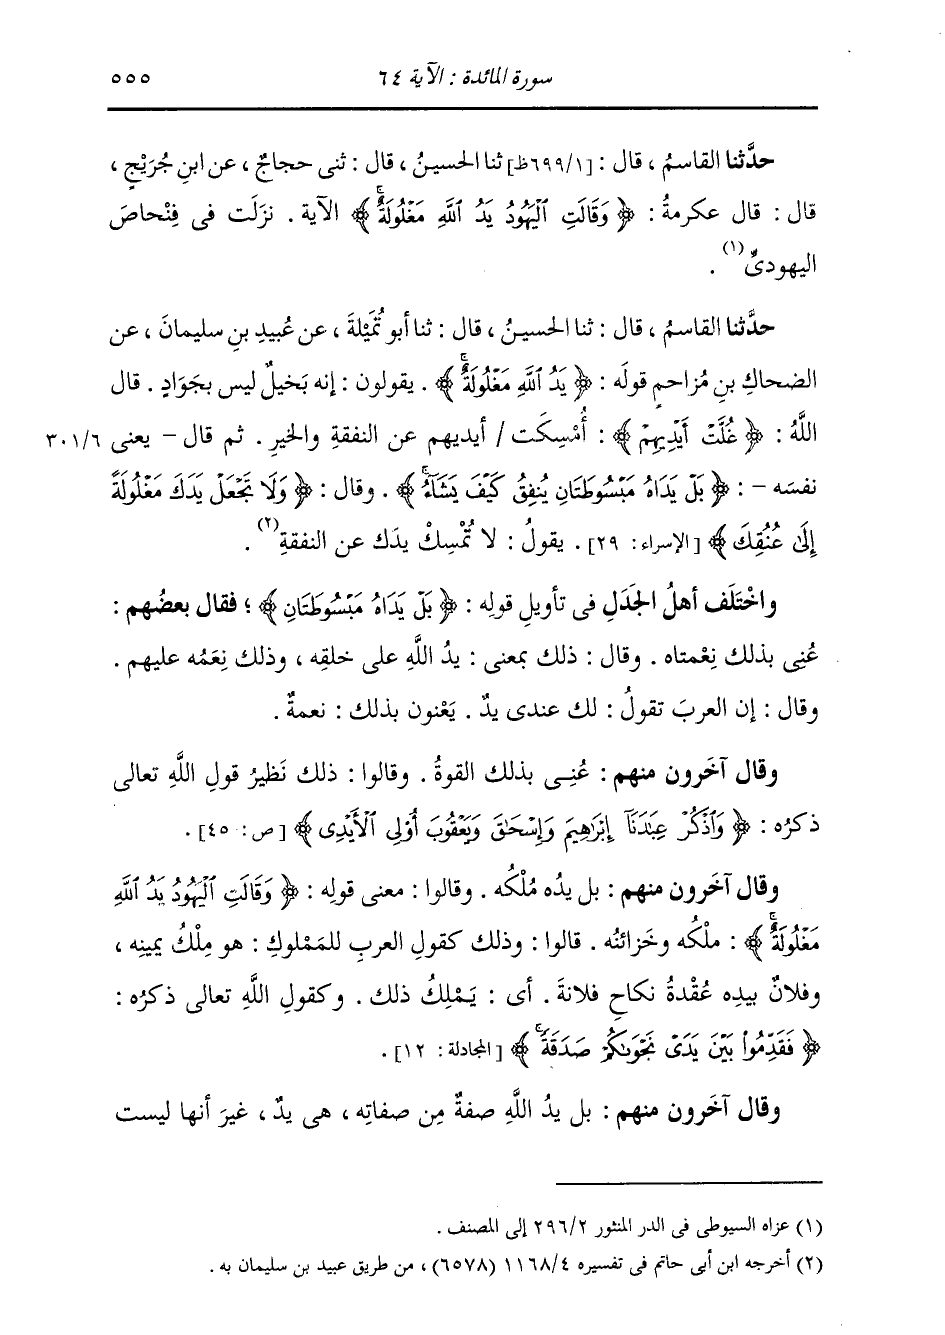 سورة المائدة : الآية ٦٤
٥٥٥
حدَّثنا القاسمُ ، قال : [٦٩٩/١ظ] ثنا الحسينُ ، قال : ثنى حجاجٌ ، عن ابنِ جُرَيْجٍ ،
قال : قال عكرمةُ : ﴿ وَقَالَتِ ٱلْيَهُودُ يَدُ ٱللَّهِ مَغْلُولَةٌۚ ﴾ الآية . نزَلَت فى فِنْحاصَ
اليهودىِّ(١) .
حدَّثنا القاسمُ ، قال : ثنا الحسينُ ، قال : ثنا أبو تُمَيْلةَ ، عن عُبيدِ بنِ سليمانَ ، عن
الضحاكِ بنِ مُزاحمٍ قولَه : ﴿ يَدُ ٱللَّهِ مَغْلُولَةٌۚ ﴾ . يقولون : إنه بَخيلٌ ليس بجَوَادٍ . قال
اللَّهُ : ﴿ غُلَّتْ أَيْدِيهِمْ ﴾ : أُمْسِكَت / أيديهم عن النفقةِ والخيرِ . ثم قال – يعنى ٣٠١/٦
نفسَه – : ﴿ بَلْ يَدَاهُ مَبْسُوطَتَانِ يُنفِقُ كَيْفَ يَشَآءُۚ ﴾ . وقال : ﴿ وَلَا تَجْعَلْ يَدَكَ مَغْلُولَةً
إِلَىٰ عُنُقِكَ ﴾ [الإسراء: ٢٩] . يقولُ : لا تُمْسِكْ يدَك عن النفقةِ(٢) .
واخْتَلَف أهلُ الجَدَلِ فى تأويلِ قولِه : ﴿ بَلْ يَدَاهُ مَبْسُوطَتَانِ ﴾ ؛ فقال بعضُهم :
عُنِى بذلك نِعْمتاه . وقال : ذلك بمعنى : يدُ اللَّهِ على خلقِه ، وذلك نِعَمُه عليهم .
وقال : إن العربَ تقولُ : لك عندى يدٌ . يَعْنون بذلك : نعمةٌ .
وقال آخَرون منهم : عُنِى بذلك القوةُ . وقالوا : ذلك نَظيرُ قولِ اللَّهِ تعالى
ذكرُه : ﴿ وَٱذْكُرْ عِبَٰدَنَآ إِبْرَٰهِيمَ وَإِسْحَٰقَ وَيَعْقُوبَ أُو۟لِى ٱلْأَيْدِى ﴾ [ص: ٤٥] .
وقال آخَرون منهم : بل يدُه مُلْكُه . وقالوا : معنى قولِه : ﴿ وَقَالَتِ ٱلْيَهُودُ يَدُ ٱللَّهِ
مَغْلُولَةٌۚ ﴾ : ملْكُه وخَزائنُه . قالوا : وذلك كقولِ العربِ للمَمْلوكِ : هو مِلْكُ يمينِه ،
وفلانٌ بيدِه عُقْدةُ نكاحِ فلانةَ . أى : يَمْلِكُ ذلك . وكقولِ اللَّهِ تعالى ذكرُه :
﴿ فَقَدِّمُوا۟ بَيْنَ يَدَىْ نَجْوَىٰكُمْ صَدَقَةًۚ ﴾ [المجادلة: ١٢] .
وقال آخَرون منهم : بل يدُ اللَّهِ صفةٌ مِن صفاتِه ، هى يدٌ ، غيرَ أنها ليست
(١) عزاه السيوطى فى الدر المنثور ٢٩٦/٢ إلى المصنف .
(٢) أخرجه ابن أبى حاتم فى تفسيره ١١٦٨/٤ (٦٥٧٨) ، من طريق عبيد بن سليمان به .